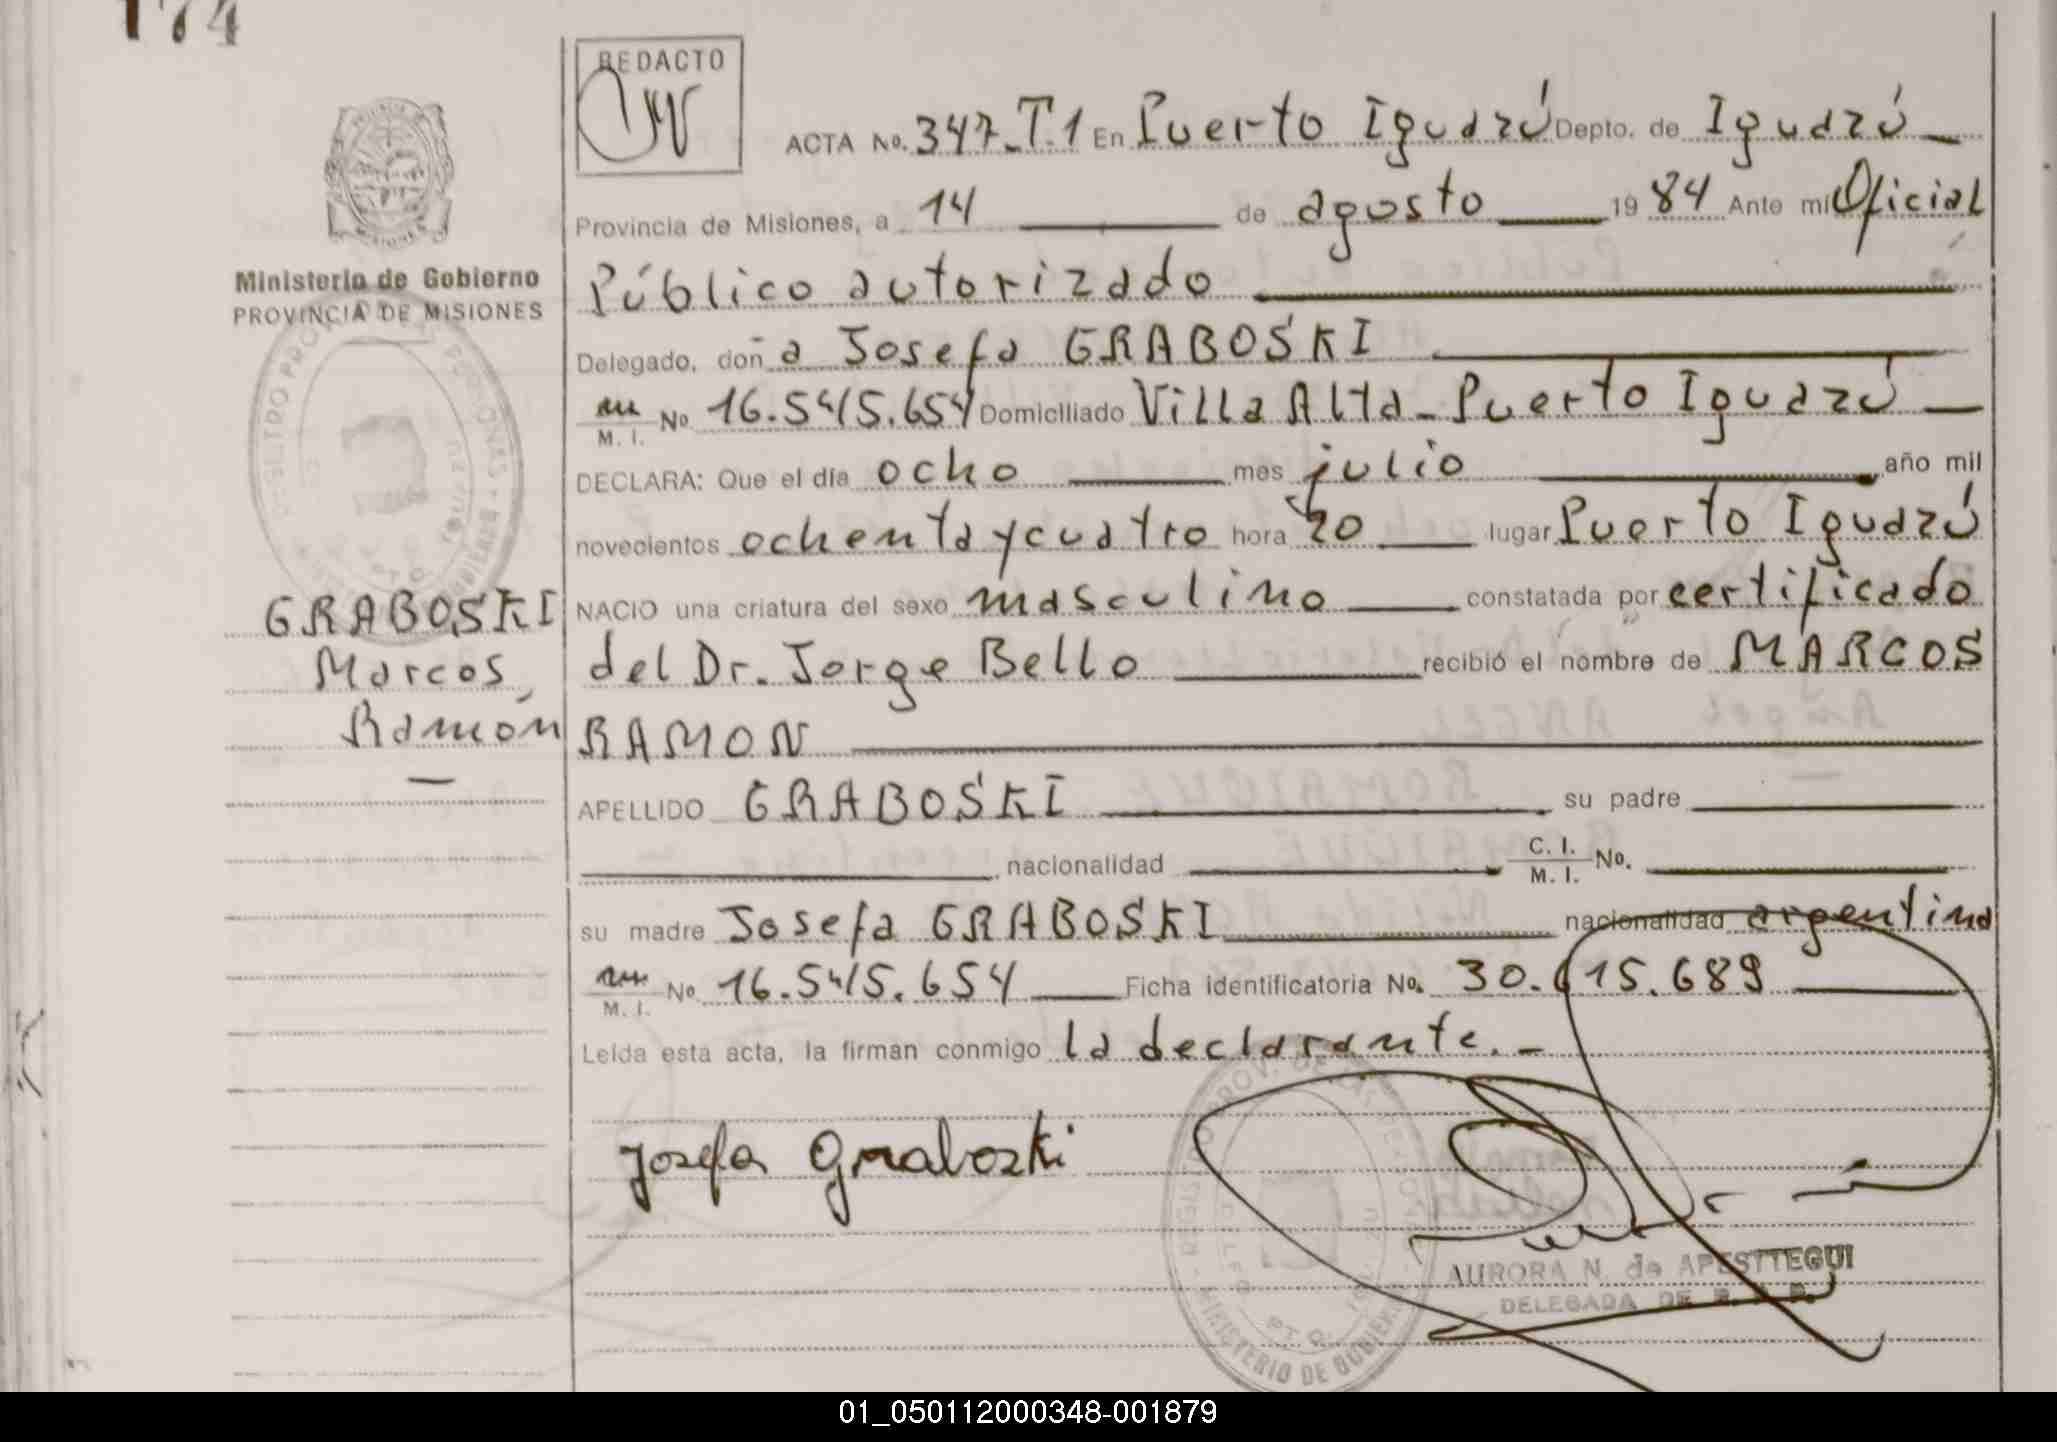 174
REDACTO
ACTA No. 347-T.1 En Puerto Iguazú Depto. de Iguazú
Provincia de Misiones, a 14 de agosto 1984 Ante mí Oficial
Público autorizado
Delegado, doña Josefa GRABOSKI
M. I. No 16.545.654 Domiciliado Villa Alta - Puerto Iguazú
DECLARA: Que el día ocho mes julio año mil
novecientos ochenta y cuatro hora 20 lugar Puerto Iguazú
NACIO una criatura del sexo masculino constatada por certificado
del Dr. Jorge Bello recibió el nombre de MARCOS
RAMON
APELLIDO GRABOSKI su padre
nacionalidad C. I. M. I. No.
su madre Josefa GRABOSKI nacionalidad argentina
M. I. No 16.545.654 Ficha identificatoria No. 30.615.689
Leída esta acta, la firman conmigo la declarante. -
Josefa Graboski
AURORA N. de APESTTEGUI
DELEGADA DE
MINISTERIO DE GOBIERNO
Ministerio de Gobierno
PROVINCIA DE MISIONES
GRABOSKI
Marcos
Ramón
01_050112000348-001879